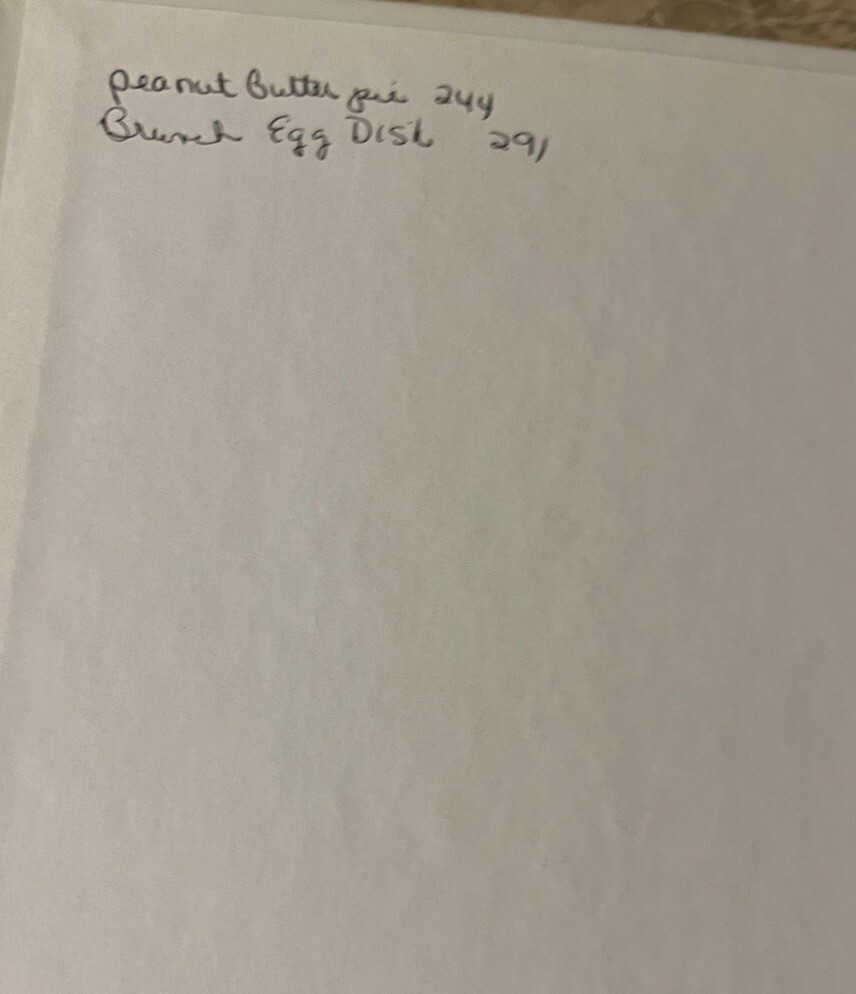 Peanut Butter pie 244
Brunch Egg Dish 291